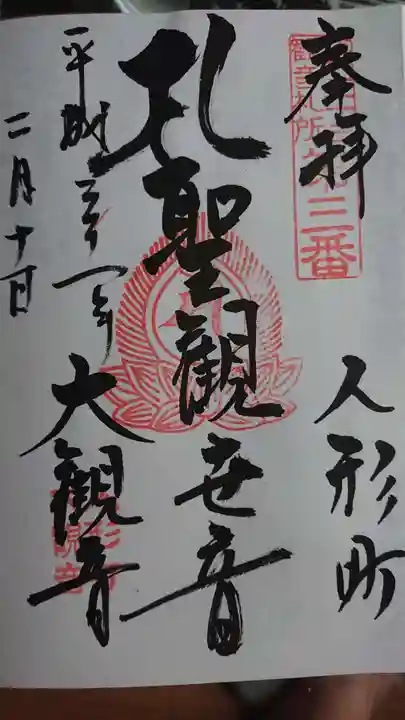 奉拝
人形町
札所第三番
聖観世音
大観音
平成三十一年
二月十日